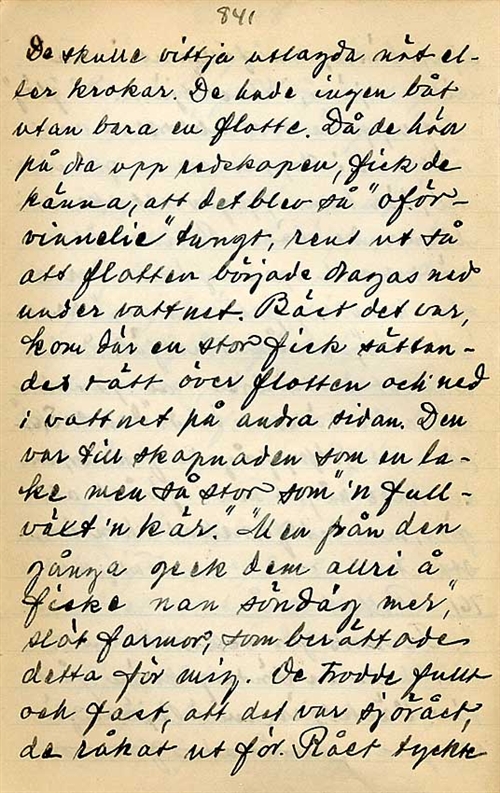 841
De skulle vittja utlagda nät el-
ler krokar. De hade ingen båt
utan bara en flotte. Då de höllo
på dra upp redskapen, fick de
känna, att det blev så "oför-
vinnelie" tungt, rent ut så
att flotten började dragas ned
under vattnet. Bäst det var,
kom där en stor fisk sättan-
des rätt över flotten och ned
i vattnet på andra sidan. Den
var till skapnaden som en la-
ke men så stor som "'n full-
växt'n kär." "Men från den
gånga geck dem allri å
fiske nan söndåg mer",
slöt farmor, som berättade
detta för mig. De trodde fullt
och fast, att det var sjörået,
de råkat ut för. Rået tyckte